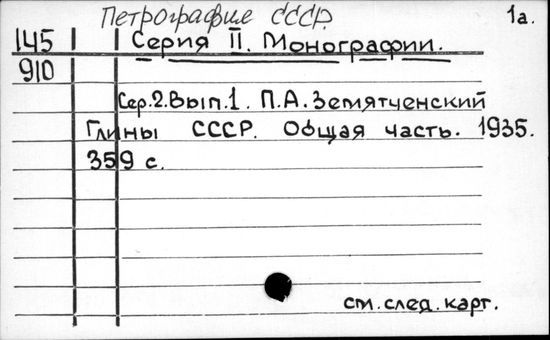 Петрография СССР. 1а.
145 Серия II. Монографии.
910
Сер.2.Вып.1. П.А.Земятченский
Глины СССР. Общая часть. 1935.
359 с.
см.след.карт.